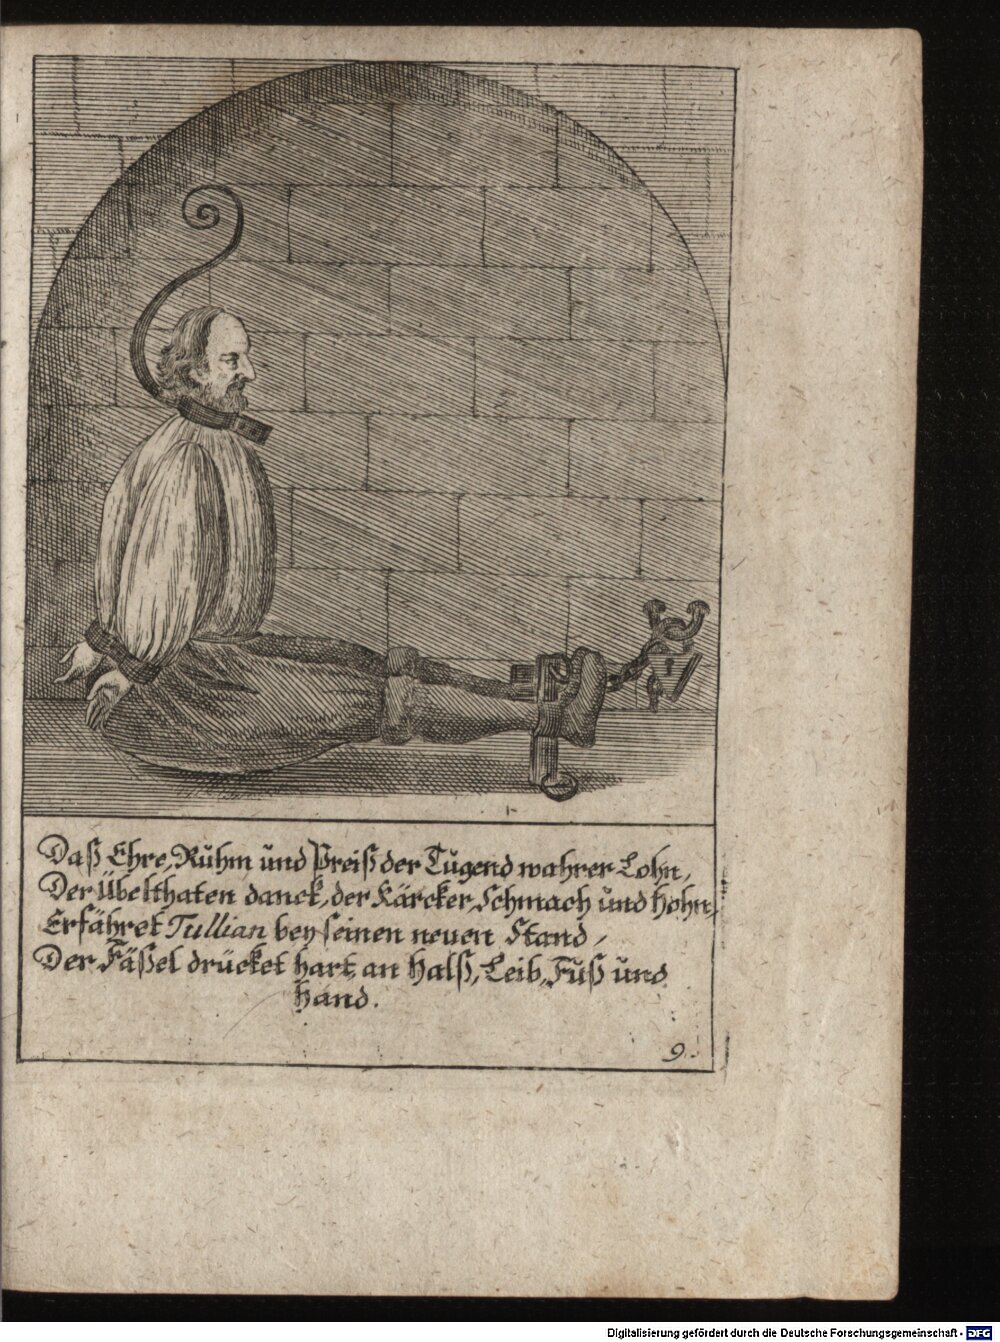 Daß Ehre, Rŭhm ŭnd Preiß der Tŭgend wahrer Lohn,
Der Übelthaten danck, der Kärcker, Schmach ŭnd Hohn,
Erfähret Tullian bey seinen neuen Stand,
Der Fäßel drücket hart, an Halß, Leib, Fŭß ŭnd
Hand.
9.
Digitalisierung gefördert durch die Deutsche Forschungsgemeinschaft - DFG